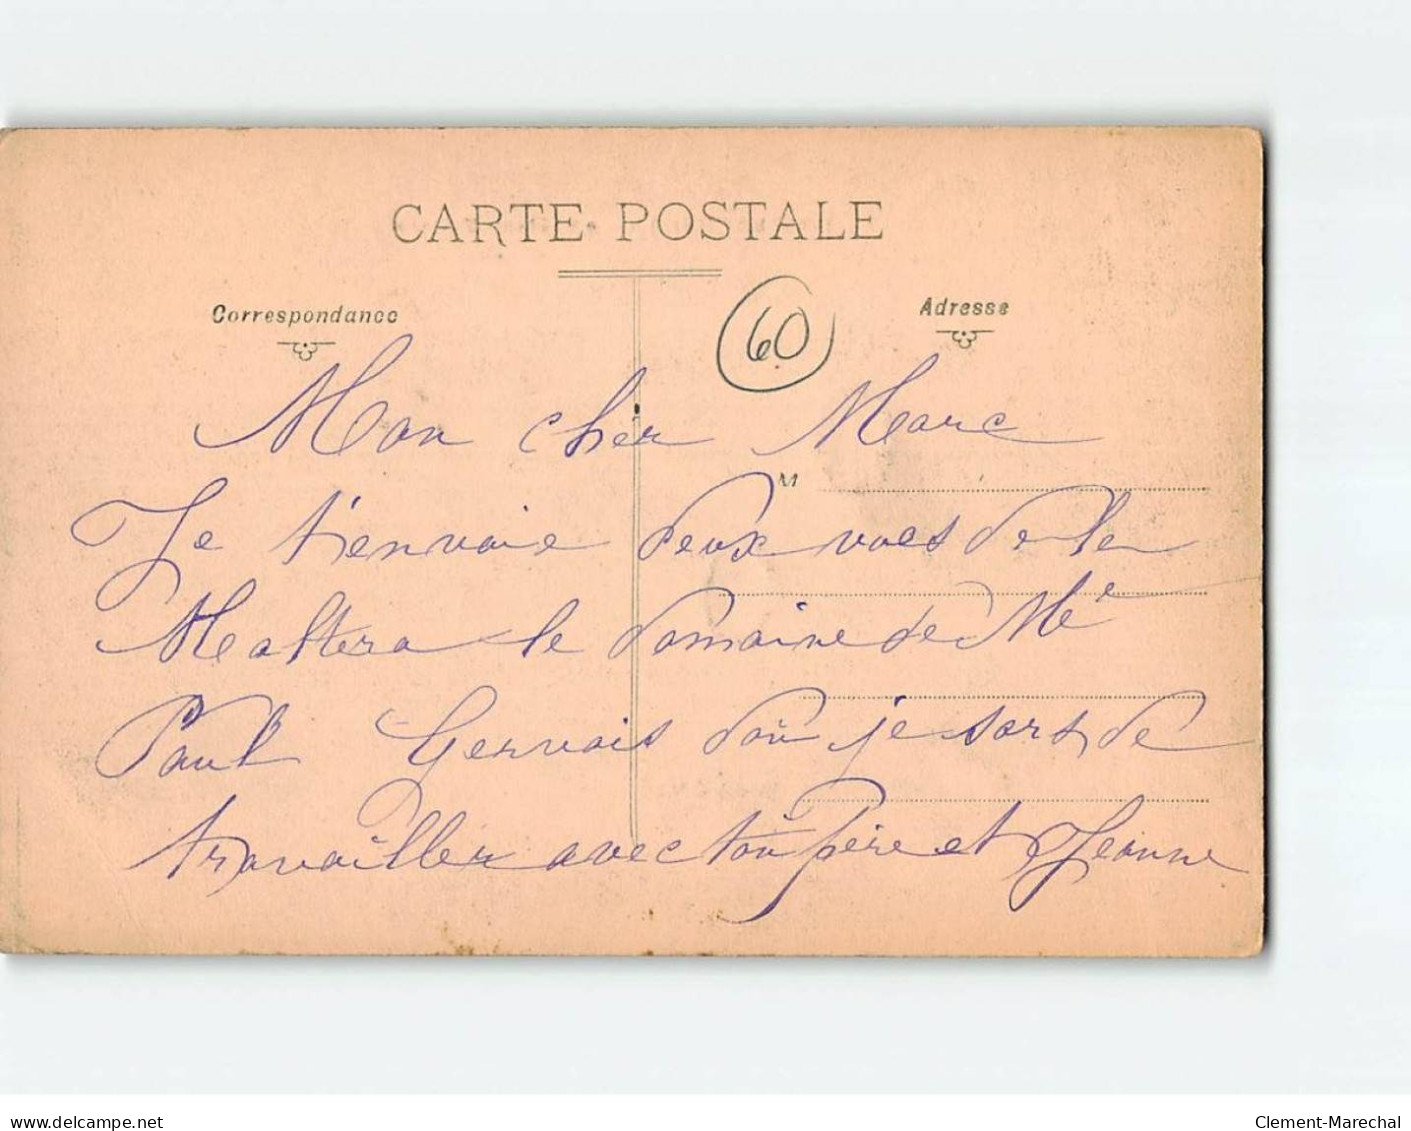 CARTE POSTALE
Correspondance
Adresse
60
Mon cher Marc
M
Je t'envoie deux vues de la
le domaine de Me
Paul Gervais d'où je sors de
travailler avec ton père et Jeanne
www.delcampe.net
Clement-Marechal